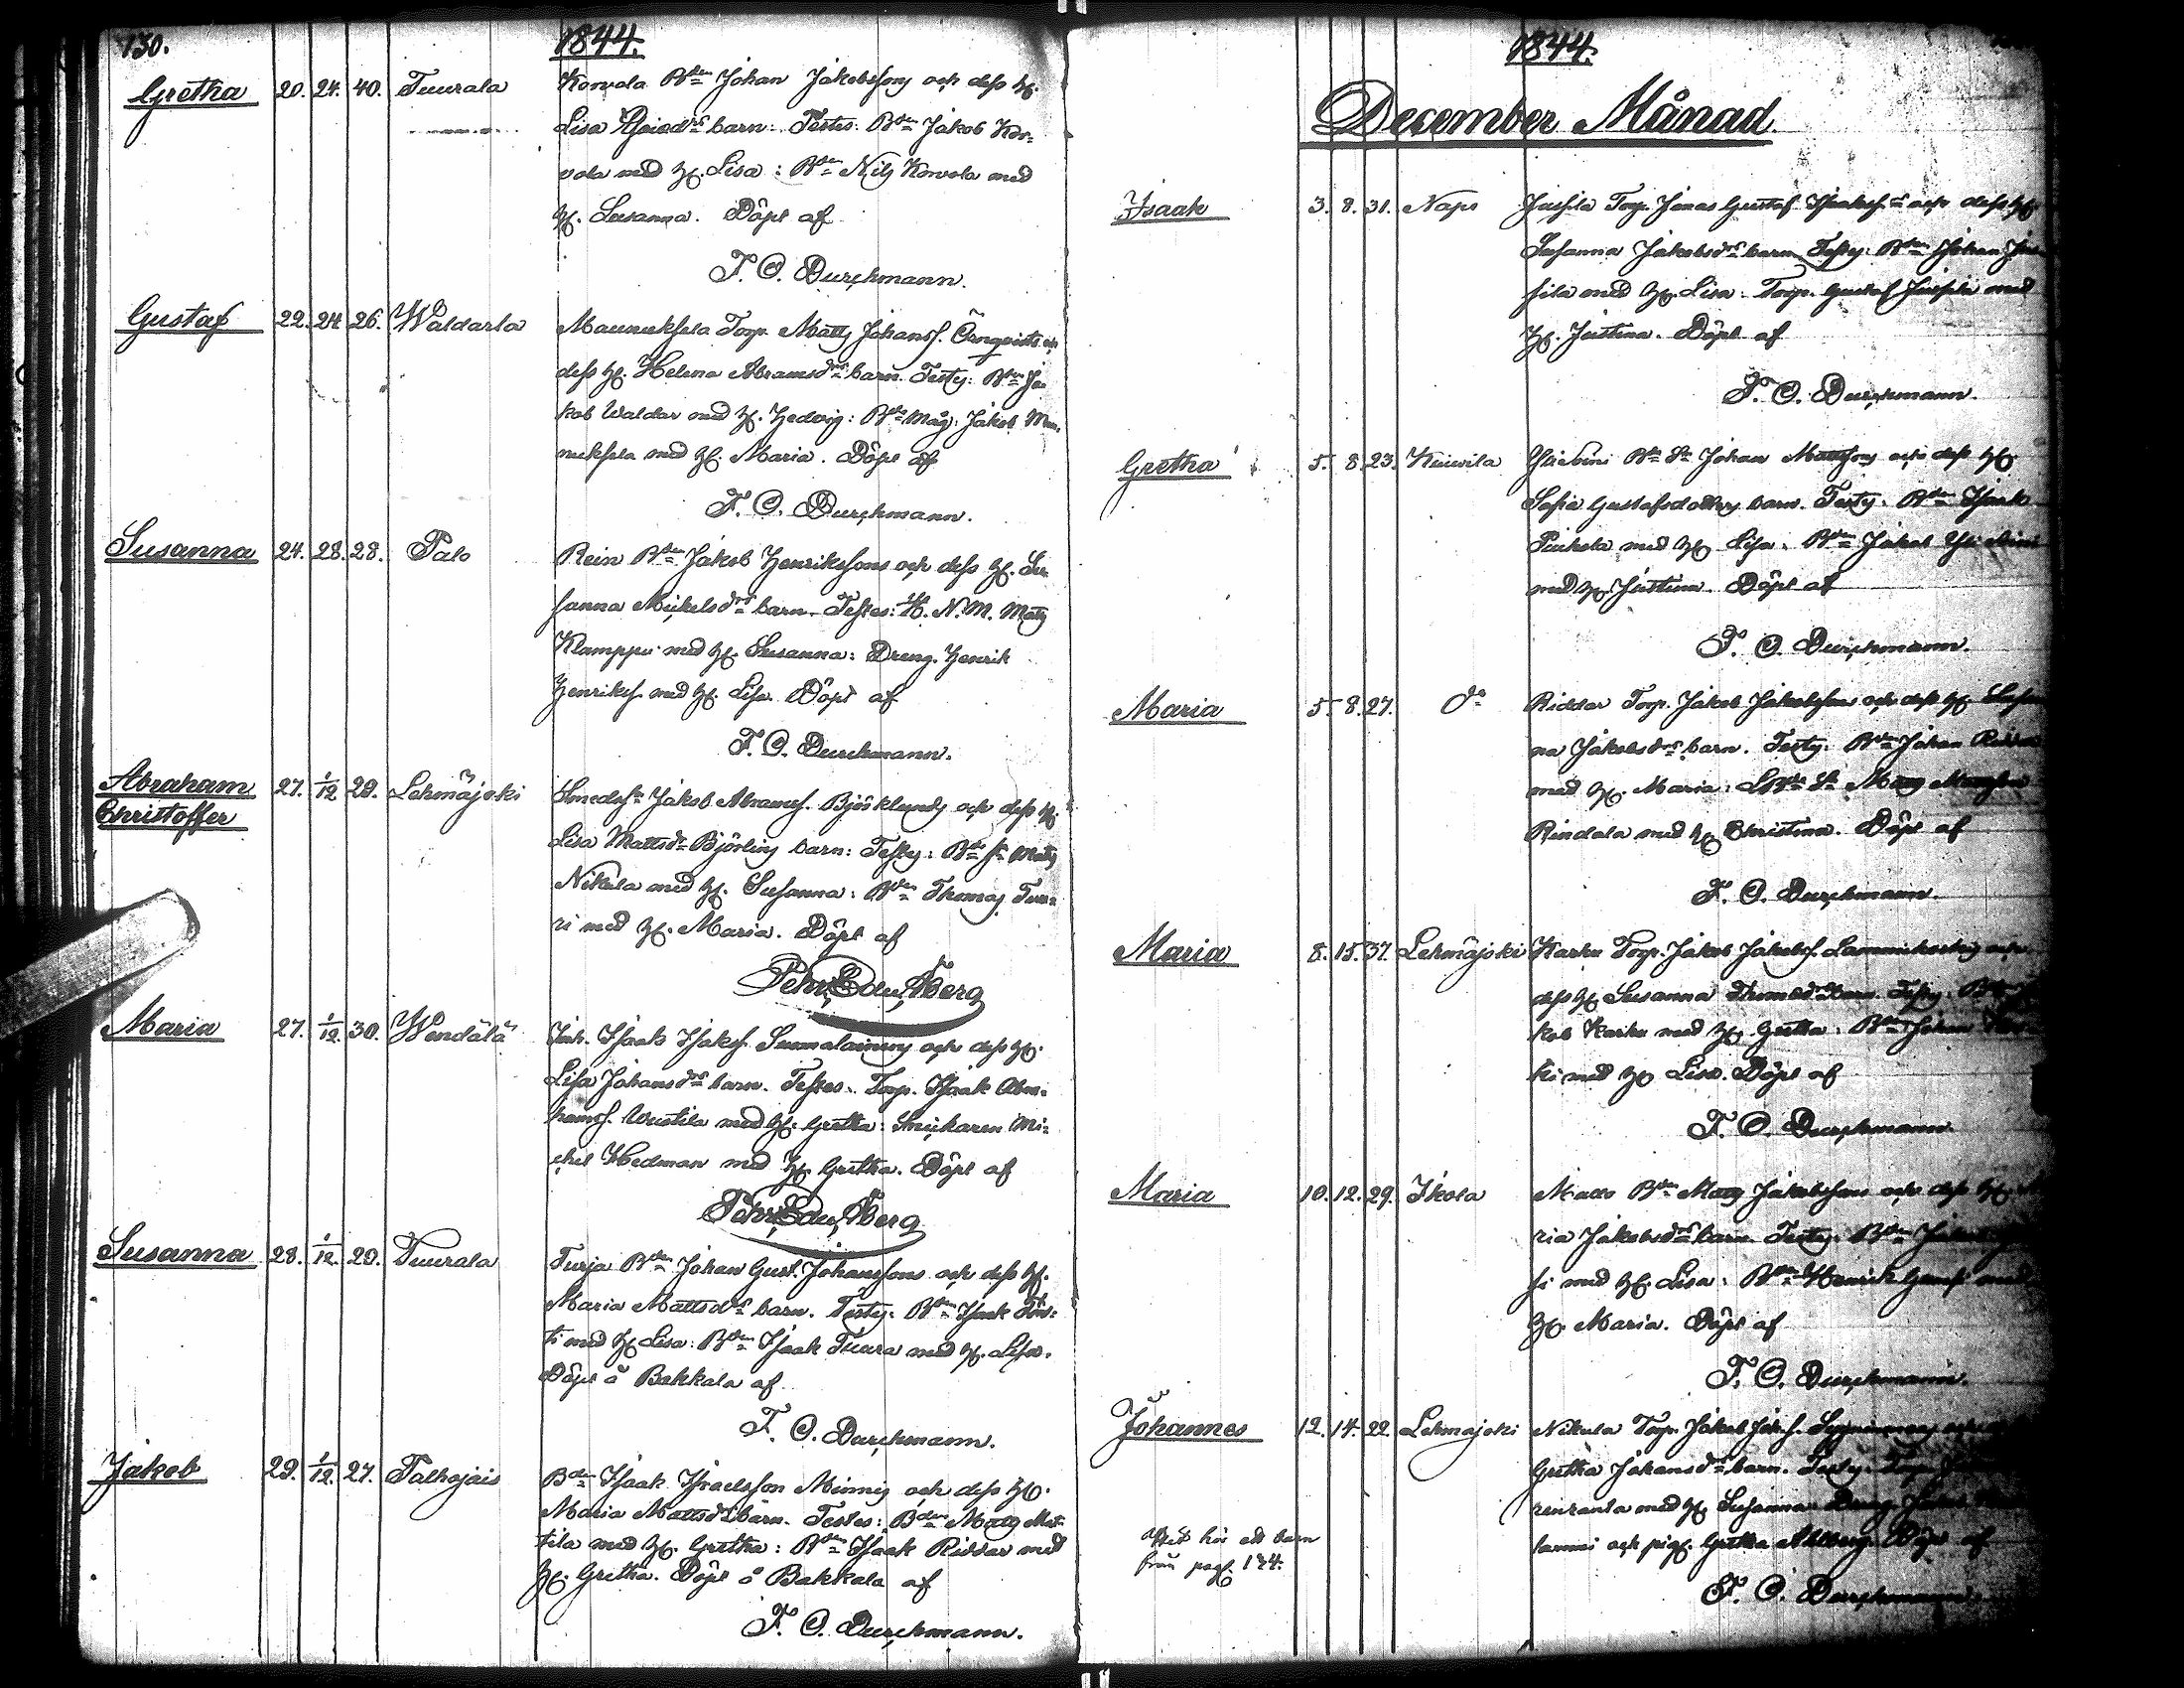 130.
1844.
Gretha 20. 24. 40. Tuurala Korvola Bdn Johan Jakobssons och dess h.
Lisa barn. Testes: Bdn Jakob Kor-
vola med h. Lisa: Bdn Nils Korvola med
h. Susanna. Döpt af
F. O. Durchmann.
Gustaf 22. 24. 26. Waldarla Maunuksela Torp. Matts Johanss. Örnqvists
dess h. Helena Abramsdrs barn. Testes: Bdn Ja-
kob Waldar med h. Hedvig: Bde Måg: Jakob Mau-
nuksela med h. Maria. Döpt af
F. O. Durchmann.
Susanna 24. 28. 28. Palo Rein Bdn Jakob Henrikssons och dess h. Su-
sanna Mickelsdrs barn. Testes: N. M. Matts
Klamppu med h. Susanna: Dreng. Henrik
Henrikss. med h. Lisa. Döpt af
F. O. Durchmann.
Abraham 27. 1/12 29. Lehmäjoki Jakob Abramss. Björklunds och dess h.
Christoffer
Lisa Mattsdr Björlings barn: Testes: Bde Sn Matts
Nikula med h. Susanna: Bdn Thomas Tuu-
ri med h. Maria. Döpt af
Pehr Edv. Åberg
Maria 27. 1/12 30. Wendälä Inh. Isaak Isakss. Suomalainens och dess h.
Lisa Johansdrs barn. Testes: Torp. Isaak Abra-
hamss. Wuotila med h. Gretha: Snickaren Mi-
chel Hedman med h. Gretha. Döpt af
Pehr Edv. Åberg
Susanna 28. 1/12 29. Tuurala Turja Bdn Johan Gust. Johanssons och dess h.
Maria Mattsdrs barn. Testes: Bdn Isaak
ti med h. Lisa: Bdn Isaak Tuura med h. Lisa.
Döpt å Bakkala af
F. O. Durchmann.
Jakob 29. 1/12 27. Palhojais Bdn Isaak Israelsson Minnis och dess h.
Maria Mattsdrs barn. Testes: Bden Matts Mat-
tila med h. Gretha: Bdn Isaak Riddar med
h. Gretha. Döpt å Bakkala af
F. O. Durchmann.
1844.
December Månad.
Isaak 3. 8. 31. Napo Jussila Torp. Jonas Gustaf Isakss. och dess h.
Susanna Jakobsdrs barn. Testes: Bdn Johan Jus-
sila med h. Lisa: Torp. Gustaf Jussila med
h. Justina. Döpt af
F. O. Durchmann.
Gretha 5. 8. 23. Kuivila Bde Sn Johan Mattssons och dess h.
Sofia Gustafsdotters barn. Testes: Bdn Isaak
med h. Lisa. Bdn Jakob
med h. Justina. Döpt af
F. O. Durchmann.
Maria 5. 8. 27. do Riddar Torp. Jakob Jakobssons och dess h. Susan-
na Jakobsdrs barn. Testes: Bdn Johan Riddar
med h. Maria: Sn Matts
Rindala med h. Christina. Döpt af
F. O. Durchmann.
Maria 8. 15. 37. Lehmäjoki Karhu Torp. Jakob Jakobss. Lammikoskis och
dess h. Susanna barn. Testes:
kob Karhu med h. Gretha: Bdn Johan
ki med h. Lisa. Döpt af
F. O. Durchmann.
Maria 10. 12. 29. Ikola Bdn Matts Jakobssons och dess h.
ria Jakobsdrs barn. Testes: Bdn
si med h. Lisa: Bdn Henrik med
h. Maria. Döpt af
F. O. Durchmann.
Johannes 12. 14. 22. Lehmäjoki Nikula Torp. Jakob Jak.s.
Gretha Johansdrs barn. Testes: Torp.
renranta med h. Susanna: Dreng
lammi och pig. Gretha Ahlberg. Döpt af
F. O. Durchmann.
hör ett barn
från pag. 134.